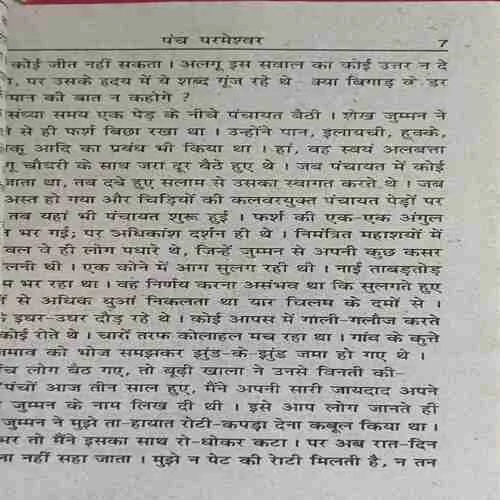 पंच परमेश्वर 7
कोई जीत नहीं सकता । अलगू इस सवाल का कोई उत्तर न दे
, पर उसके हृदय में ये शब्द गूंज रहे थे क्या बिगाड़ के डर
मान की बात न कहोगे ?
संध्या समय एक पेड़ के नीचे पंचायत बैठी । शेख जुम्मन ने
से ही फर्श बिछा रखा था । उन्होंने पान, इलायची, हुक्के,
कू आदि का प्रबंध भी किया था । हां, वह स्वयं अलबत्ता
गू चौधरी के साथ जरा दूर बैठे हुए थे । जब पंचायत में कोई
जाता था, तब दबे हुए सलाम से उसका स्वागत करते थे । जब
अस्त हो गया और चिड़ियों की कलवरयुक्त पंचायत पेड़ों पर
तब यहां भी पंचायत शुरू हुई । फर्श की एक-एक अंगुल
भर गई; पर अधिकांश दर्शन ही थे । निमंत्रित महाशयों में
वल वे ही लोग पधारे थे, जिन्हें जुम्मन से अपनी कुछ कसर
लनी थी । एक कोने में आग सुलग रही थी । नाई ताबड़तोड़
म भर रहा था । वह निर्णय करना असंभव था कि सुलगते हुए
से अधिक धुआं निकलता था यार चिलम के दमों से ।
इधर-उधर दौड़ रहे थे । कोई आपस में गाली-गलौज करते
कोई रोते थे । चारों तरफ कोलाहल मच रहा था । गांव के कुत्ते
जमाव को भोज समझकर झुंड-के-झुंड जमा हो गए थे ।
च लोग बैठ गए, तो बूढ़ी खाला ने उनसे विनती की-
पंचों आज तीन साल हुए, मैंने अपनी सारी जायदाद अपने
जुम्मन के नाम लिख दी थी । इसे आप लोग जानते ही
जुम्मन ने मुझे ता-हायात रोटी-कपड़ा देना कबूल किया था ।
भर तो मैंने इसका साथ रो-धोकर कटा । पर अब रात-दिन
ना नहीं सहा जाता । मुझे न पेट की रोटी मिलती है, न तन